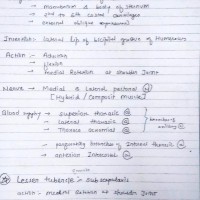 → manubrium & body of sternum
→ 2nd to 6th costal cartilages
→ external oblique aponeurosis
Insertion - lateral lip of bicipital groove of Humerus
Action - Adduction
→ flexion
→ Medial Rotation at shoulder Joint
Nerve - Medial & lateral pectoral (N)
[Hybrid / Composite Muscle]
Blood supply → superior thoracic (a)
→ lateral thoracic (a)
→ Thoraco acromial (a)
branches of axillary (a)
→ perforating branches of Internal thoracic (a)
→ anterior Intercostal (a)
Lesser tubercle → Subscapularis
Action - medial Rotation at shoulder Joint